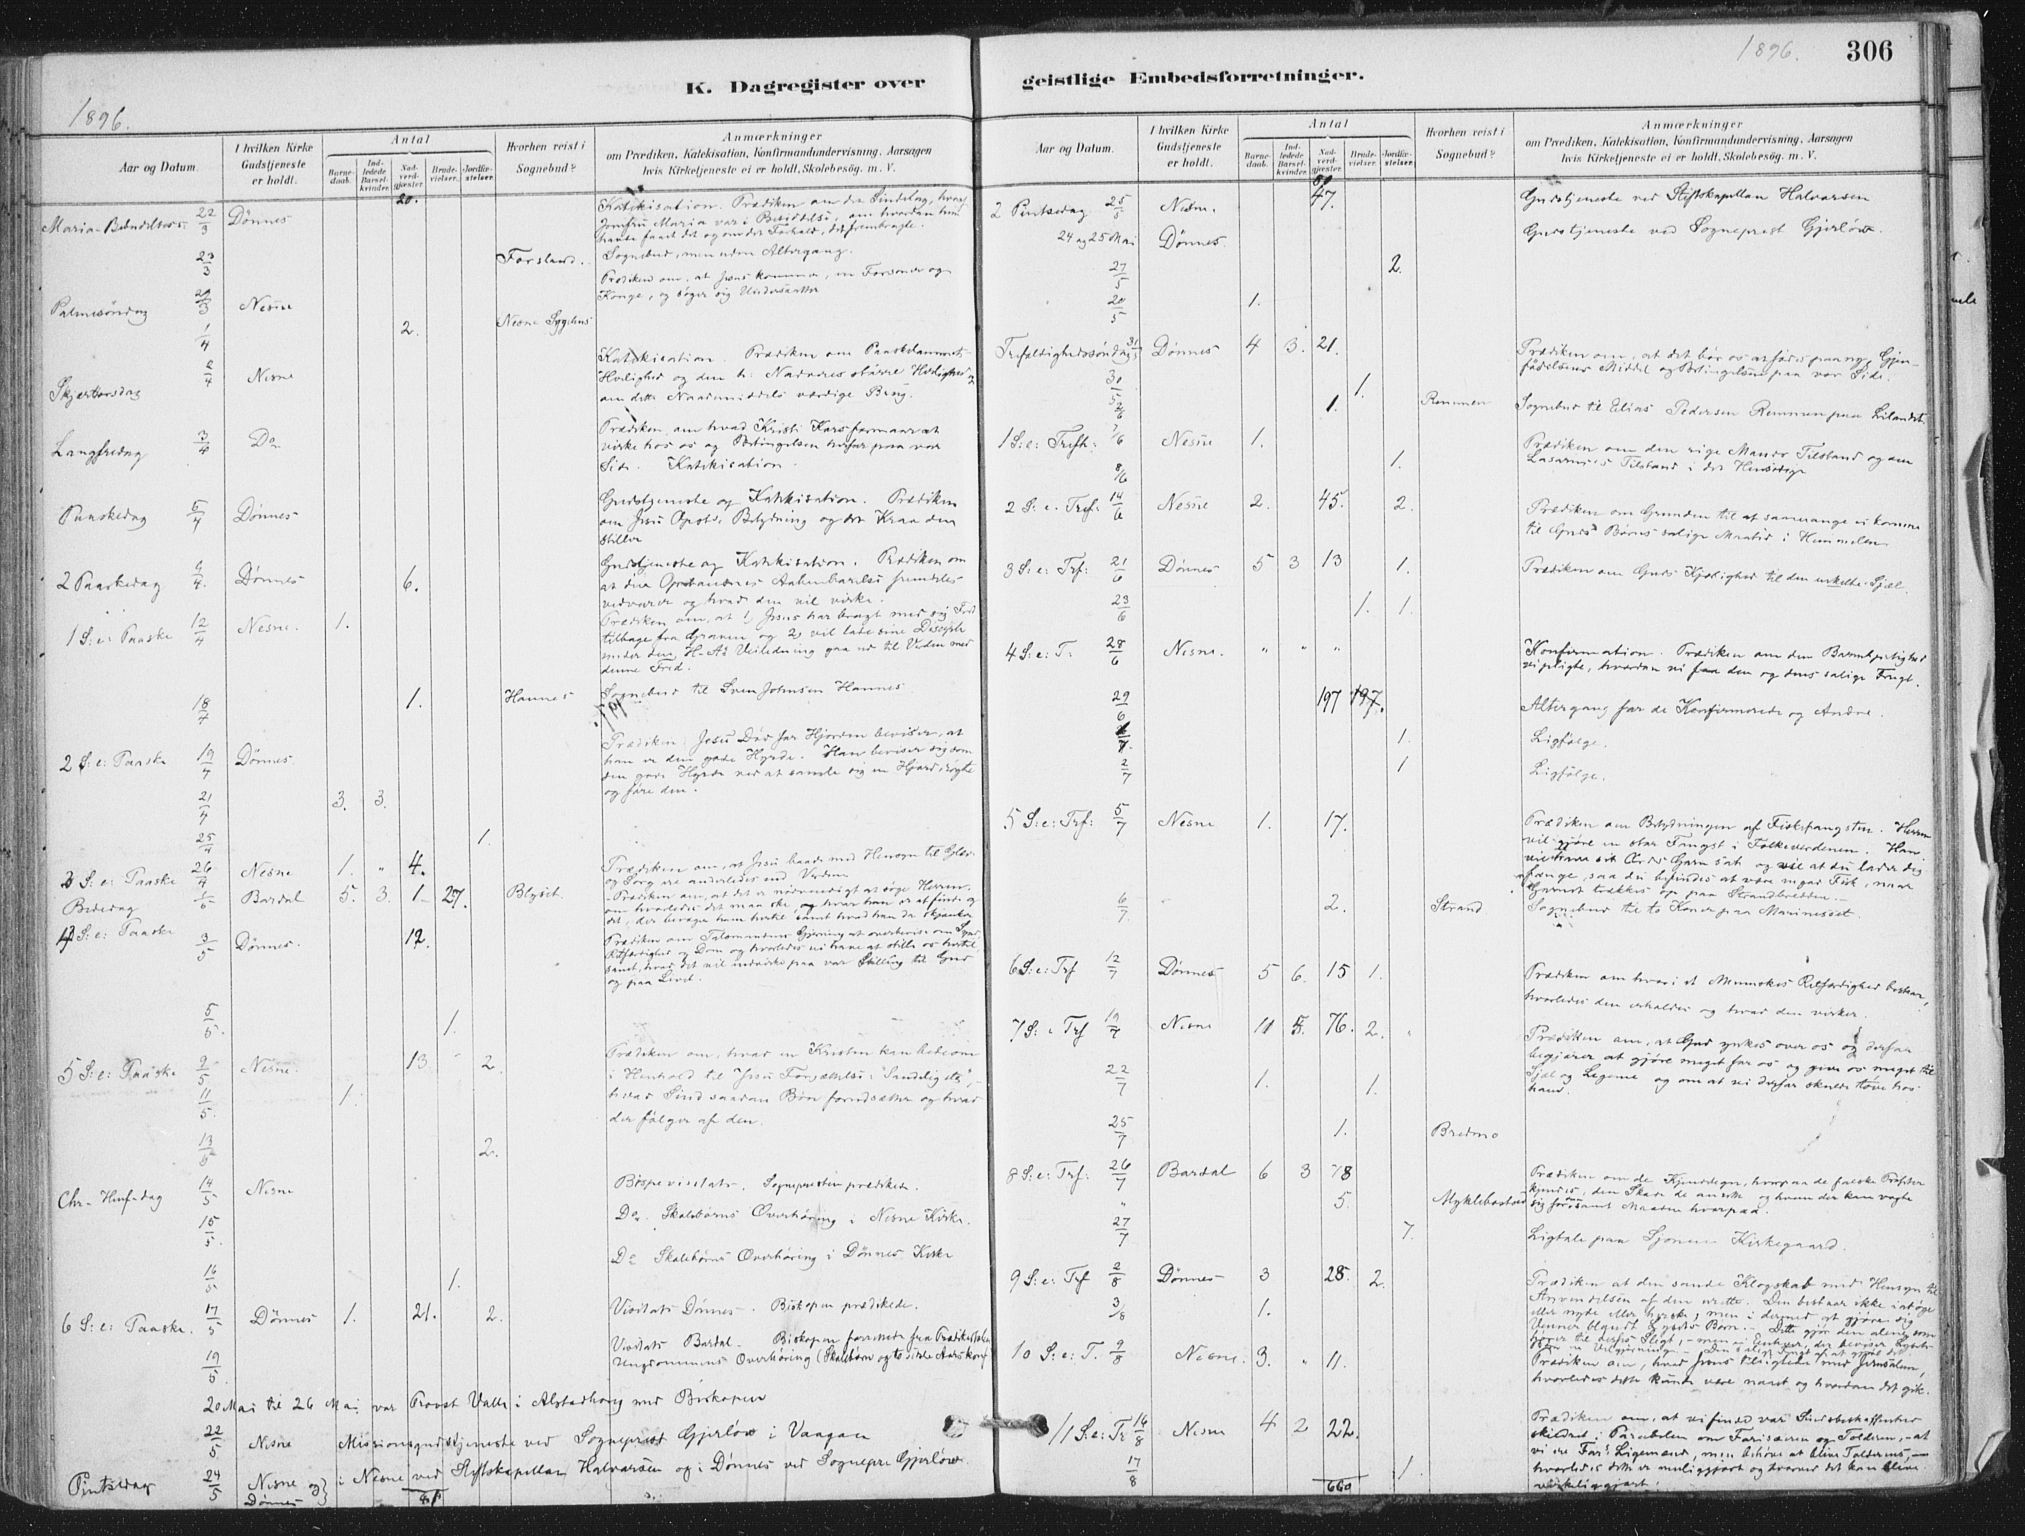 1896.
K. Dagregister over
Aar og Datum.
I hvilken Kirke Gudstjeneste er holdt.
Antal
Barnedaab.
Indledede Barselkvinder.
Nadverdgjester.
Brudevielser.
Jordfæstelser.
Hvorhen reist i Sognebud?
Anmærkninger
om Prædiken, Katekisation, Konfirmandundervisning, Aarsagen
hvis Kirketjeneste ei er holdt, Skolebesøg. m. V.
Maria-Bebudelses- 22/3 Dönnes 20. Katekisation. Prædiken om
Jomfru Maria var i Besiddelse, om hvordan hun
havde faaet det og om det Forhold, det frembragte.
23/3 Forsland. Sognebud, men uden Altergang.
Prædiken om, at Jesus kommer, en Forsoner og
Palmesöndag 29/3 Nesne Konge, og söger sig Undersaatter
1/4 2. Nesne Sygehus
Katekisation. Prædiken om
Skjærtorsdag 2/4 Nesne Hellighed og den h: Nadveres större Hellighed og
om dette Naademiddels værdige Brug.
Langfredag 3/4 Do Prædiken, om hvad Kristi Kors formaar at
virke hos os og Betingelsen herfor paa vor
Side. Katekisation.
Paaskedag 5/4 Dönnes Gudstjeneste og Katekisation. Prædiken
om Jesu Opst: Betydning og det Krav den
stiller
2 Paaskedag 6/4 Dönnes 6. Gudstjeneste og Katekisation. Prædiken om
at den Opstandnes Aabenbarelse fremdeles
vedvarer og hvad den vil virke.
1 S: e: Paaske 12/4 Nesne. 1. Prædiken om, at 1, Jesus har bragt med sig Fred
tilbage fra Graven og 2, vil lade sine Disciple
under den H-As Veiledning gaa ud til Verden med
denne Fred.
18/4 1. Hannes Sognebud til Sven Johnsen Hannes
2 S: e: Paaske 19/4 Dönnes. Prædiken: Jesu Död for Hjorden beviser, at
han er den gode Hyrde. Han beviser sig som
den gode Hyrde ved at samle sig en Hjord, rögte
og före den.
21/4 3. 3.
25/4 1.
3 S: e: Paaske 26/4 Nesne 1. " 4. Prædiken om, at Jesu baade med Hensyn til Glæde
og Sorg ere anderledes end Verden
Bededag 1/5 Bardal 5. 3. 1- 27. Blyset. Prædiken om, at det er nødvendigt at söge Herren
om hvorledes det maa ske, og hvor han er at finde og
det, der bevæger ham hertil samt hvad han da skjænker
4 S: e: Paaske 3/5 Dönnes. 12. Prædiken om Talsmandens Gjerning at overbevise om Synd,
Retfærdighed og Dom og hvorledes vi have at stille os hertil
samt, hvad det vil indvirke paa vor Stilling til Gud
og paa Livet.
5/5. 1.
5 S: e: Paaske 9/5 Nesne. 13 " 2. Prædiken om, hvad en Kristen kan bede om
i Henhold til Jesu Forjættelse: "Sandelig etc",
11/5. 1. hvad Sind saadan Bön forudsætter og hvad
der følger af den.
13/5 2.
Chr- Himf-dag 14/5 Nesne Bispevisitats. Sognepresten prædikede.
15/5. Do. Skolebörns Overhöring i Nesne Kirke.
Do Skolebörns Overhöring i Dönnes Kirke
16/5 1.
6 S: e: Paaske. 17/5 Dönnes 1. 21. 2. Visitats Dönnes. Biskopen prædikede.
19/5 Visitats Bardal. Biskopen forrettede fra Prædikestolen
Ungdommens Overhöring (Skolebörn og to sidste Aars konf
20 Mai til 26 Mai var Provst Valle i Alstadhaug med Biskopen
22/5 Nesne Missionsgudstjeneste ved Sogneprest Gjerløw i Vaagan
Pintsedag 24/5 Nesne og Dönnes } i Nesne ved Stiftskapellan Halvorsen og i Dönnes ved Sognepre Gjerlöw.
81
1896.
306
geistlige Embedsforretninger.
Aar og Datum.
I hvilken Kirke Gudstjeneste er holdt.
Antal
Barnedaab.
Indledede Barselkvinder.
Nadverdgjester.
Brudevielser.
Jordfæstelser.
Hvorhen reist i Sognebud?
Anmærkninger
om Prædiken, Katekisation, Konfirmandundervisning, Aarsagen
hvis Kirketjeneste ei er holdt, Skolebesøg. m. V.
2 Pintsedag 25/5 Nesne. 47. Gudstjeneste ved Stiftskapellan Halvorsen
24 og 25 Mai Dönnes. Gudstjeneste ved Sogneprest Gjerlöw
27/5 2.
20/5 1.
Trefoldighedssöndag 31/5 Dönnes 4 3. 21. Prædiken om, at det bör os at födes paa ny, Gjenfödelsens
Middel og Betingelsen paa vor Side.
30/5 1.
2/6 1. Remmen Sognebud til Elias Pedersen Remmen paa Lölandet
1 S: e: Trefh: 7/6 Nesne 1. Prædiken om den rige Mands Tilstand og om
8/6 1. Lasarus's Tilstand i det Hinsidige
2 S: e. Tref: 14/6 Nesne 2. 45. 2. Prædiken om Grunden til at saamange ei komme
til Guds Börns salige Maaltid i Himmelen
3 S: e: Trf: 21/6 Dönnes 5 3 13 1. Prædiken om Guds Kjærlighed til den enkelte Sjæl.
23/6 1. 1.
4 S: e: T: 28/6 Nesne. " " " Konfirmation. Prædiken om den Barmhjertighed
vi pligte, hvordan vi faa den og dens salige Frugt.
29/6 197 197. Altergang for de Konfirmerede og Andre.
1/7. 1. Ligfölge.
2/7 1 Ligfölge.
5 S: e: Trf: 5/7 Nesne 1. 17. Prædiken om Betydningen af Fiskefangsten. Herren
vil gjöre en stor Fangst i Folkeverdenen. Han
vil have sit Ords Garn sat og vil at du lader dig
fange, saa du befindes at være en god Fisk, naar
Garnet trækkes op paa Strandbredden.
6/7 2. Strand Sognebud til to Koner paa Marineset.
6 S: e: Trf 12/7 Dönnes 5 6. 15 1. Prædiken om hvori et Menneskes Retfærdighed bestaar,
hvorledes den erholdes og hvad den virker.
7 S: e Trf 19/7 Nesne 11 5. 76. 2. " Prædiken om, at Gud ynkes over os og derfor
begjærer at gjöre meget for os og give os meget til
22/7 1. 1. Sjæl og Legeme og om at vi derfor skulde töve hos
ham.
25/7 1. Bredmo
8 S: e: Trf: 26/7 Bardal 6 3 78 Prædiken om de Kjendetegn, hvorpaa de falske Profeter
kjendes, den Skade de anrette og hvem der kan vogte
" 5. Myklebostad sig for dem samt Maaden hvorpaa.
27/7 7. Ligtale paa Sjonens Kirkegaard.
9 S: e: Trf 2/8 Dönnes 3 28. 2. Prædiken at den sande Klogskab med Hensyn til
3/8 1. Anvendelsen af den urette. Den bestaar ikke i at öge
eller nyde eller, men i dermed at gjöre sig
Venner blandt Lysets Börn. Dette gjör den alene som
10 S: e: T. 9/8 Nesne. 3. " 11. Prædiken om, hvad Jesus tiligheden med Jerusalem,
hvorledes dette kunde være naaet og hvordan det gik.
11 S: e: Tr 16/8 Nesne 4 2 22. Prædiken om, at vi finde vor Sindsbeskaffenhed
skildret i Parabelen om Farisæeren og Tolderen, -at
vi ere Fars Ligemænd, men behöve at blive Tolderens, -
17/8 1. hvorledes dette er muliggjort og hvorved det kan blive
virkeliggjort.
660